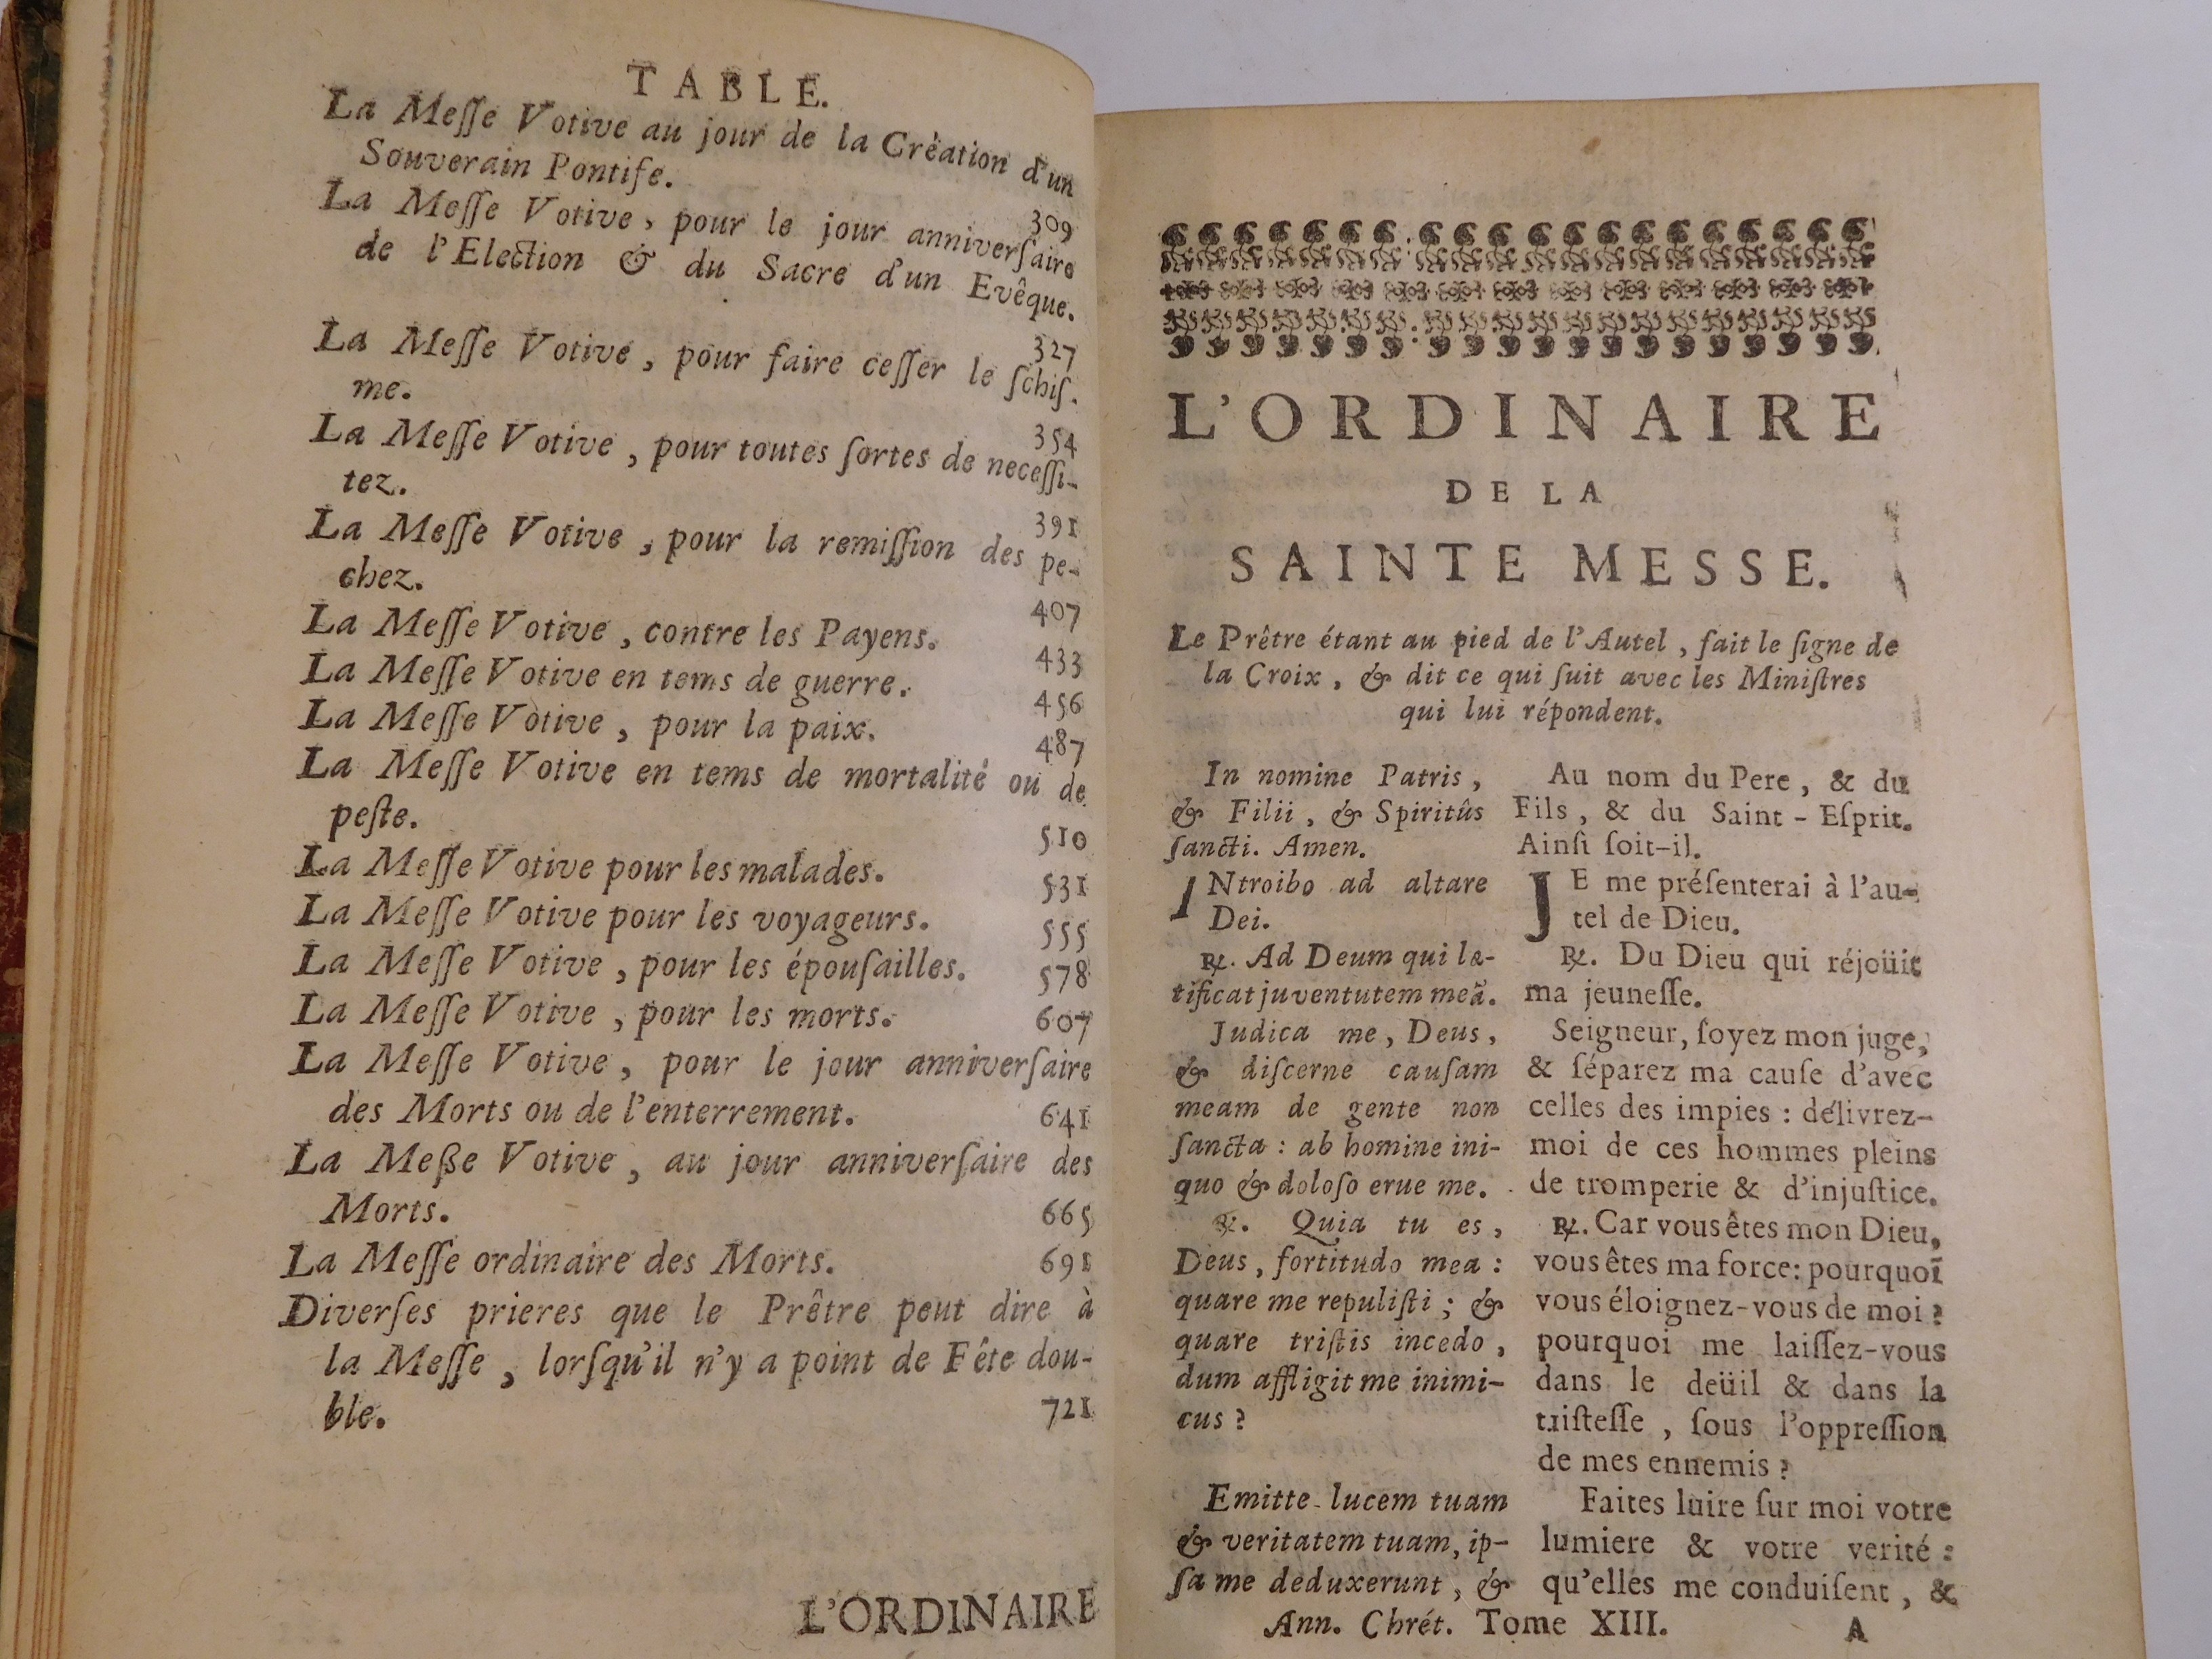 TABLE.
La Meſſe Votive au jour de la Création d'un
Souverain Pontife.
309
La Meſſe Votive, pour le jour anniverſaire
de l'Election & du Sacre d'un Evêque.
327
La Meſſe Votive, pour faire ceſſer le ſchiſ-
me.
354
La Meſſe Votive, pour toutes ſortes de neceſſi-
tez.
391
La Meſſe Votive, pour la remiſſion des pe-
chez.
407
La Meſſe Votive, contre les Payens.
433
La Meſſe Votive en tems de guerre.
456
La Meſſe Votive, pour la paix.
487
La Meſſe Votive en tems de mortalité ou de
peſte.
510
La Meſſe Votive pour les malades.
531
La Meſſe Votive pour les voyageurs.
555
La Meſſe Votive, pour les épouſailles.
578
La Meſſe Votive, pour les morts.
607
La Meſſe Votive, pour le jour anniverſaire
des Morts ou de l'enterrement. 641
La Meße Votive, au jour anniverſaire des
Morts. 665
La Meſſe ordinaire des Morts. 691
Diverſes prieres que le Prêtre peut dire à
la Meſſe, lorſqu'il n'y a point de Fête dou-
ble. 721
L'ORDINAIRE
L'ORDINAIRE
DE LA
SAINTE MESSE.
Le Prêtre étant au pied de l'Autel, fait le ſigne de
la Croix, & dit ce qui ſuit avec les Miniſtres
qui lui répondent.
In nomine Patris,
& Filii, & Spiritûs
ſancti. Amen.
INtroibo ad altare
Dei.
℟. Ad Deum qui læ-
tificat juventutem meã.
Judica me, Deus,
& diſcerne cauſam
meam de gente non
ſancta : ab homine ini-
quo & doloſo erue me.
℟. Quia tu es,
Deus, fortitudo mea :
quare me repuliſti ; &
quare triſtis incedo,
dum affligit me inimi-
cus ?
Emitte lucem tuam
& veritatem tuam, ip-
ſa me deduxerunt, &
Au nom du Pere, & du
Fils, & du Saint-Eſprit.
Ainſi ſoit-il.
JE me préſenterai à l'au-
tel de Dieu.
℟. Du Dieu qui réjoüit
ma jeuneſſe.
Seigneur, ſoyez mon juge,
& ſéparez ma cauſe d'avec
celles des impies : délivrez-
moi de ces hommes pleins
de tromperie & d'injuſtice.
℟. Car vous êtes mon Dieu,
vous êtes ma force: pourquoi
vous éloignez-vous de moi ?
pourquoi me laiſſez-vous
dans le deüil & dans la
triſteſſe, ſous l'oppreſſion
de mes ennemis ?
Faites luire ſur moi votre
lumiere & votre verité :
qu'elles me conduiſent, &
Ann. Chrét. Tome XIII. A